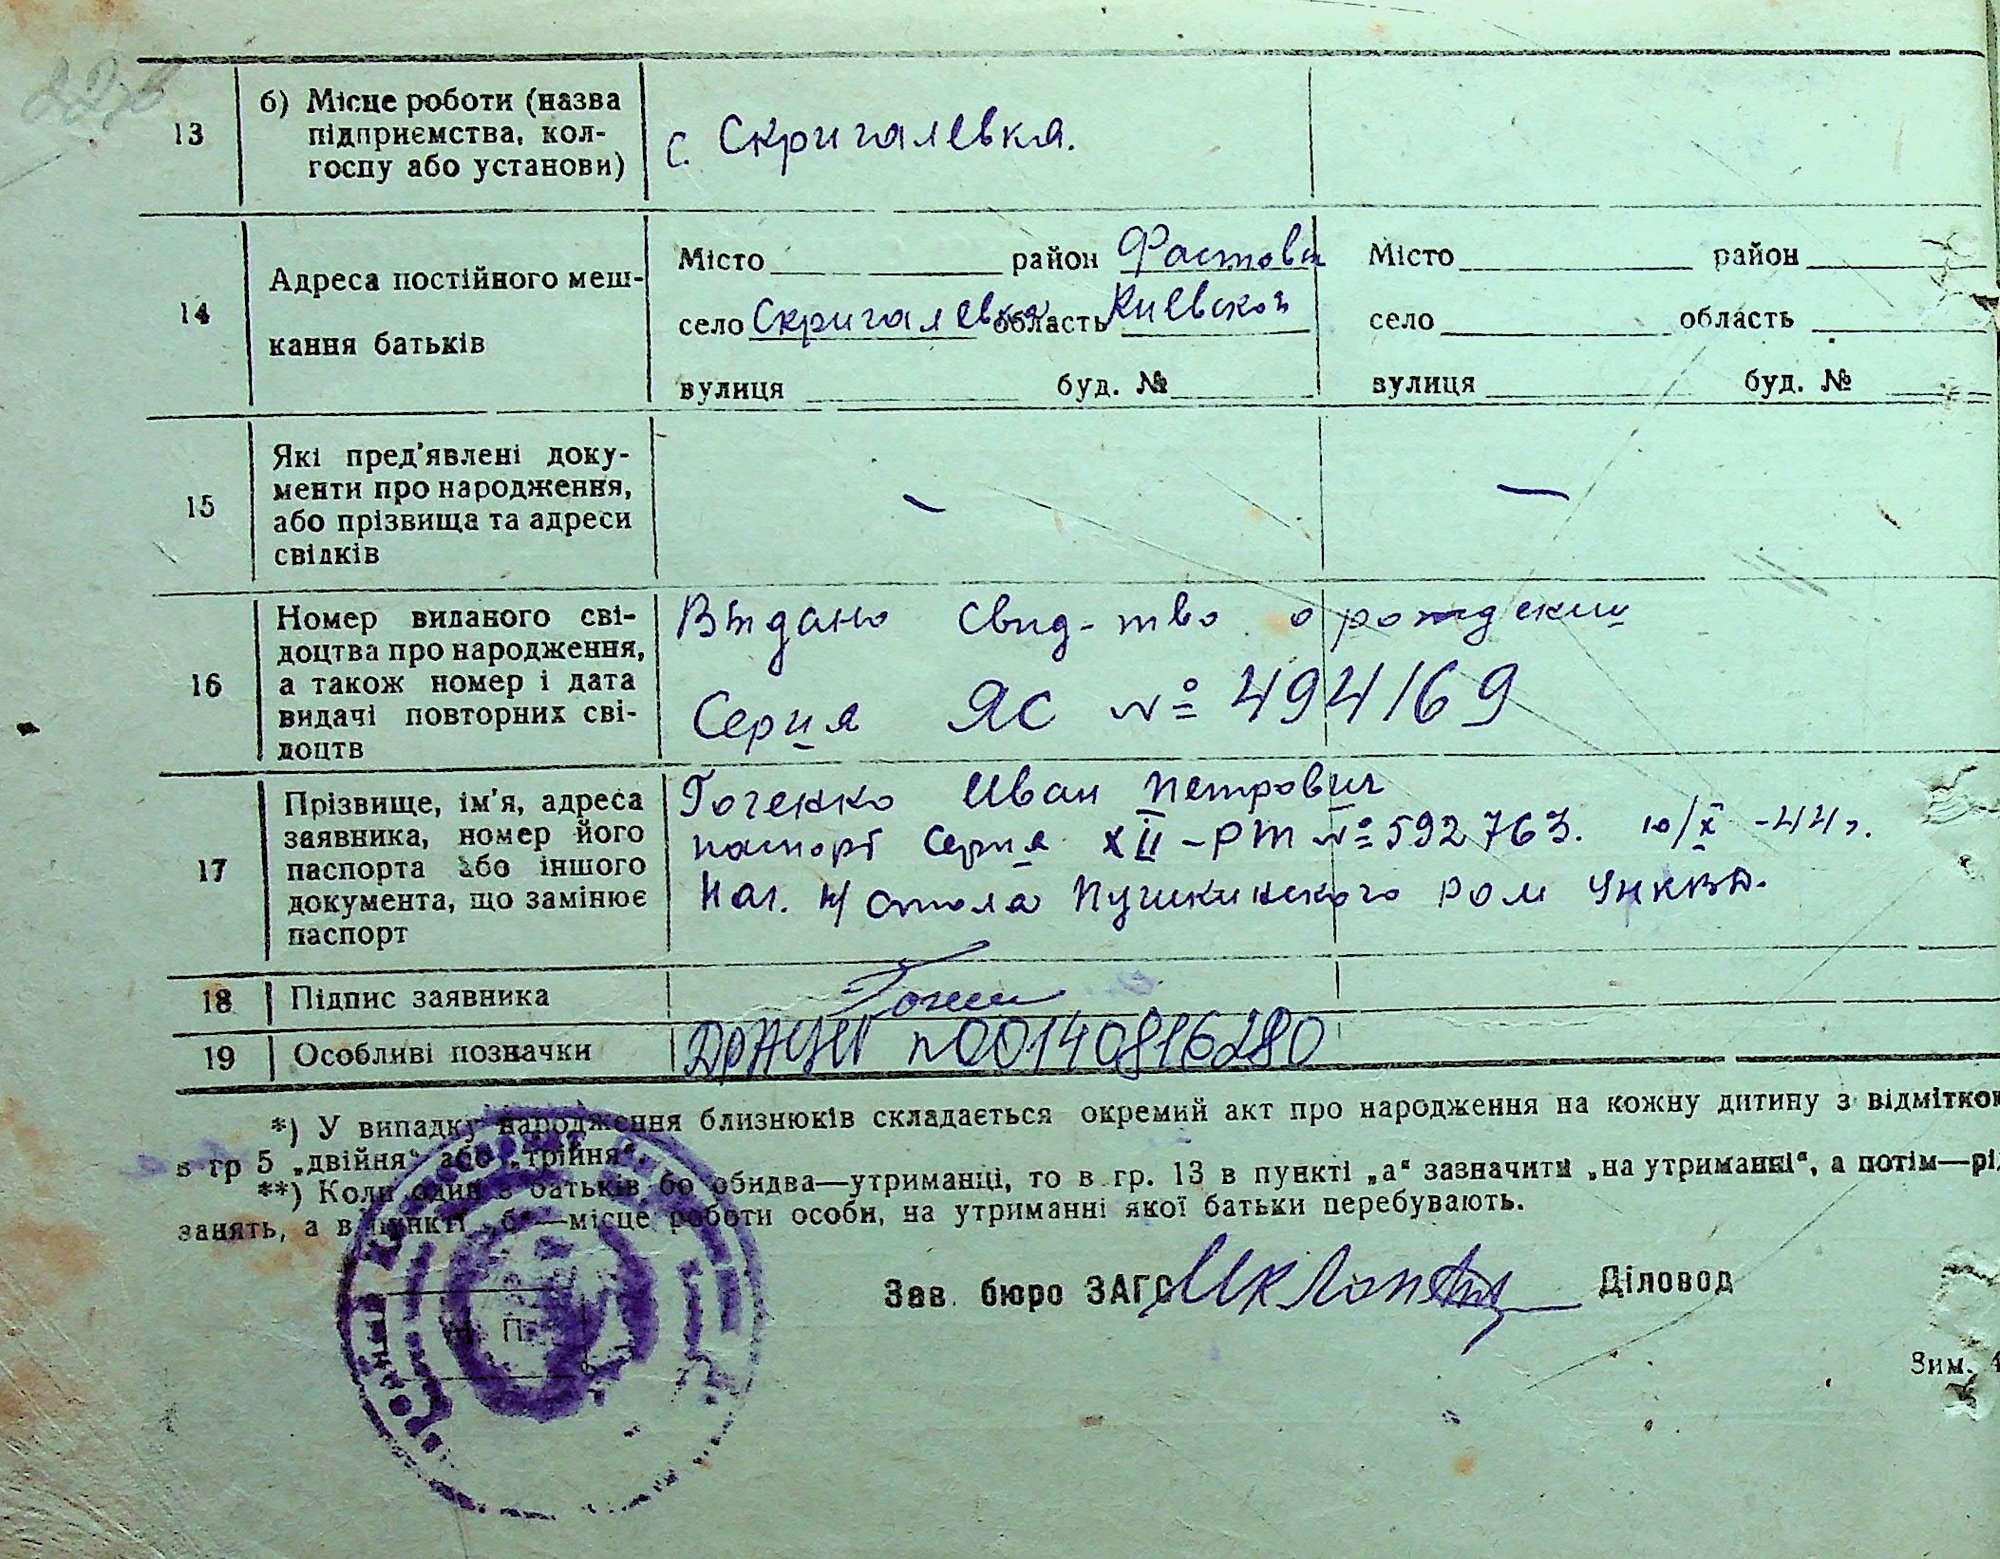 13
б) Місце роботи (назва
підприємства, кол-
госпу або установи)
с. Скригалевка.
14
Адреса постійного меш-
кання батьків
Місто район Фастовск
село Скригалевка область Киевской
вулиця буд. №
Місто район
село область
вулиця буд. №
15
Які пред'явлені доку-
менти про народження,
або прізвища та адреси
свідків
–
—
16
Номер виданого сві-
доцтва про народження,
а також номер і дата
видачі повторних сві-
доцтв
Выдано Свид-тво о рождении
Серия ЯС № 494169
17
Прізвище, ім'я, адреса
заявника, номер його
паспорта або іншого
документа, що замінює
паспорт
Гоченко Иван Петрович
паспорт Серия XII – РТ № 592763. 10/X -44г.
Нач. п/стола Пушкинского ром УНКВД.
18
Підпис заявника
19
Особливі позначки
ДРАЦСГ n00140816280
*) У випадку народження близнюків складається окремий акт про народження на кожну дитину з відміткою
в гр 5 „двійня“ або „трійня“.
**) Коли один з батьків бо обидва—утриманці, то в гр. 13 в пункті „а“ зазначити „на утриманні“, а потім—рід
занять, а в пункті „б“—місце роботи особи, на утриманні якої батьки перебувають.
Зав. бюро ЗАГС
Діловод
Зим. 4